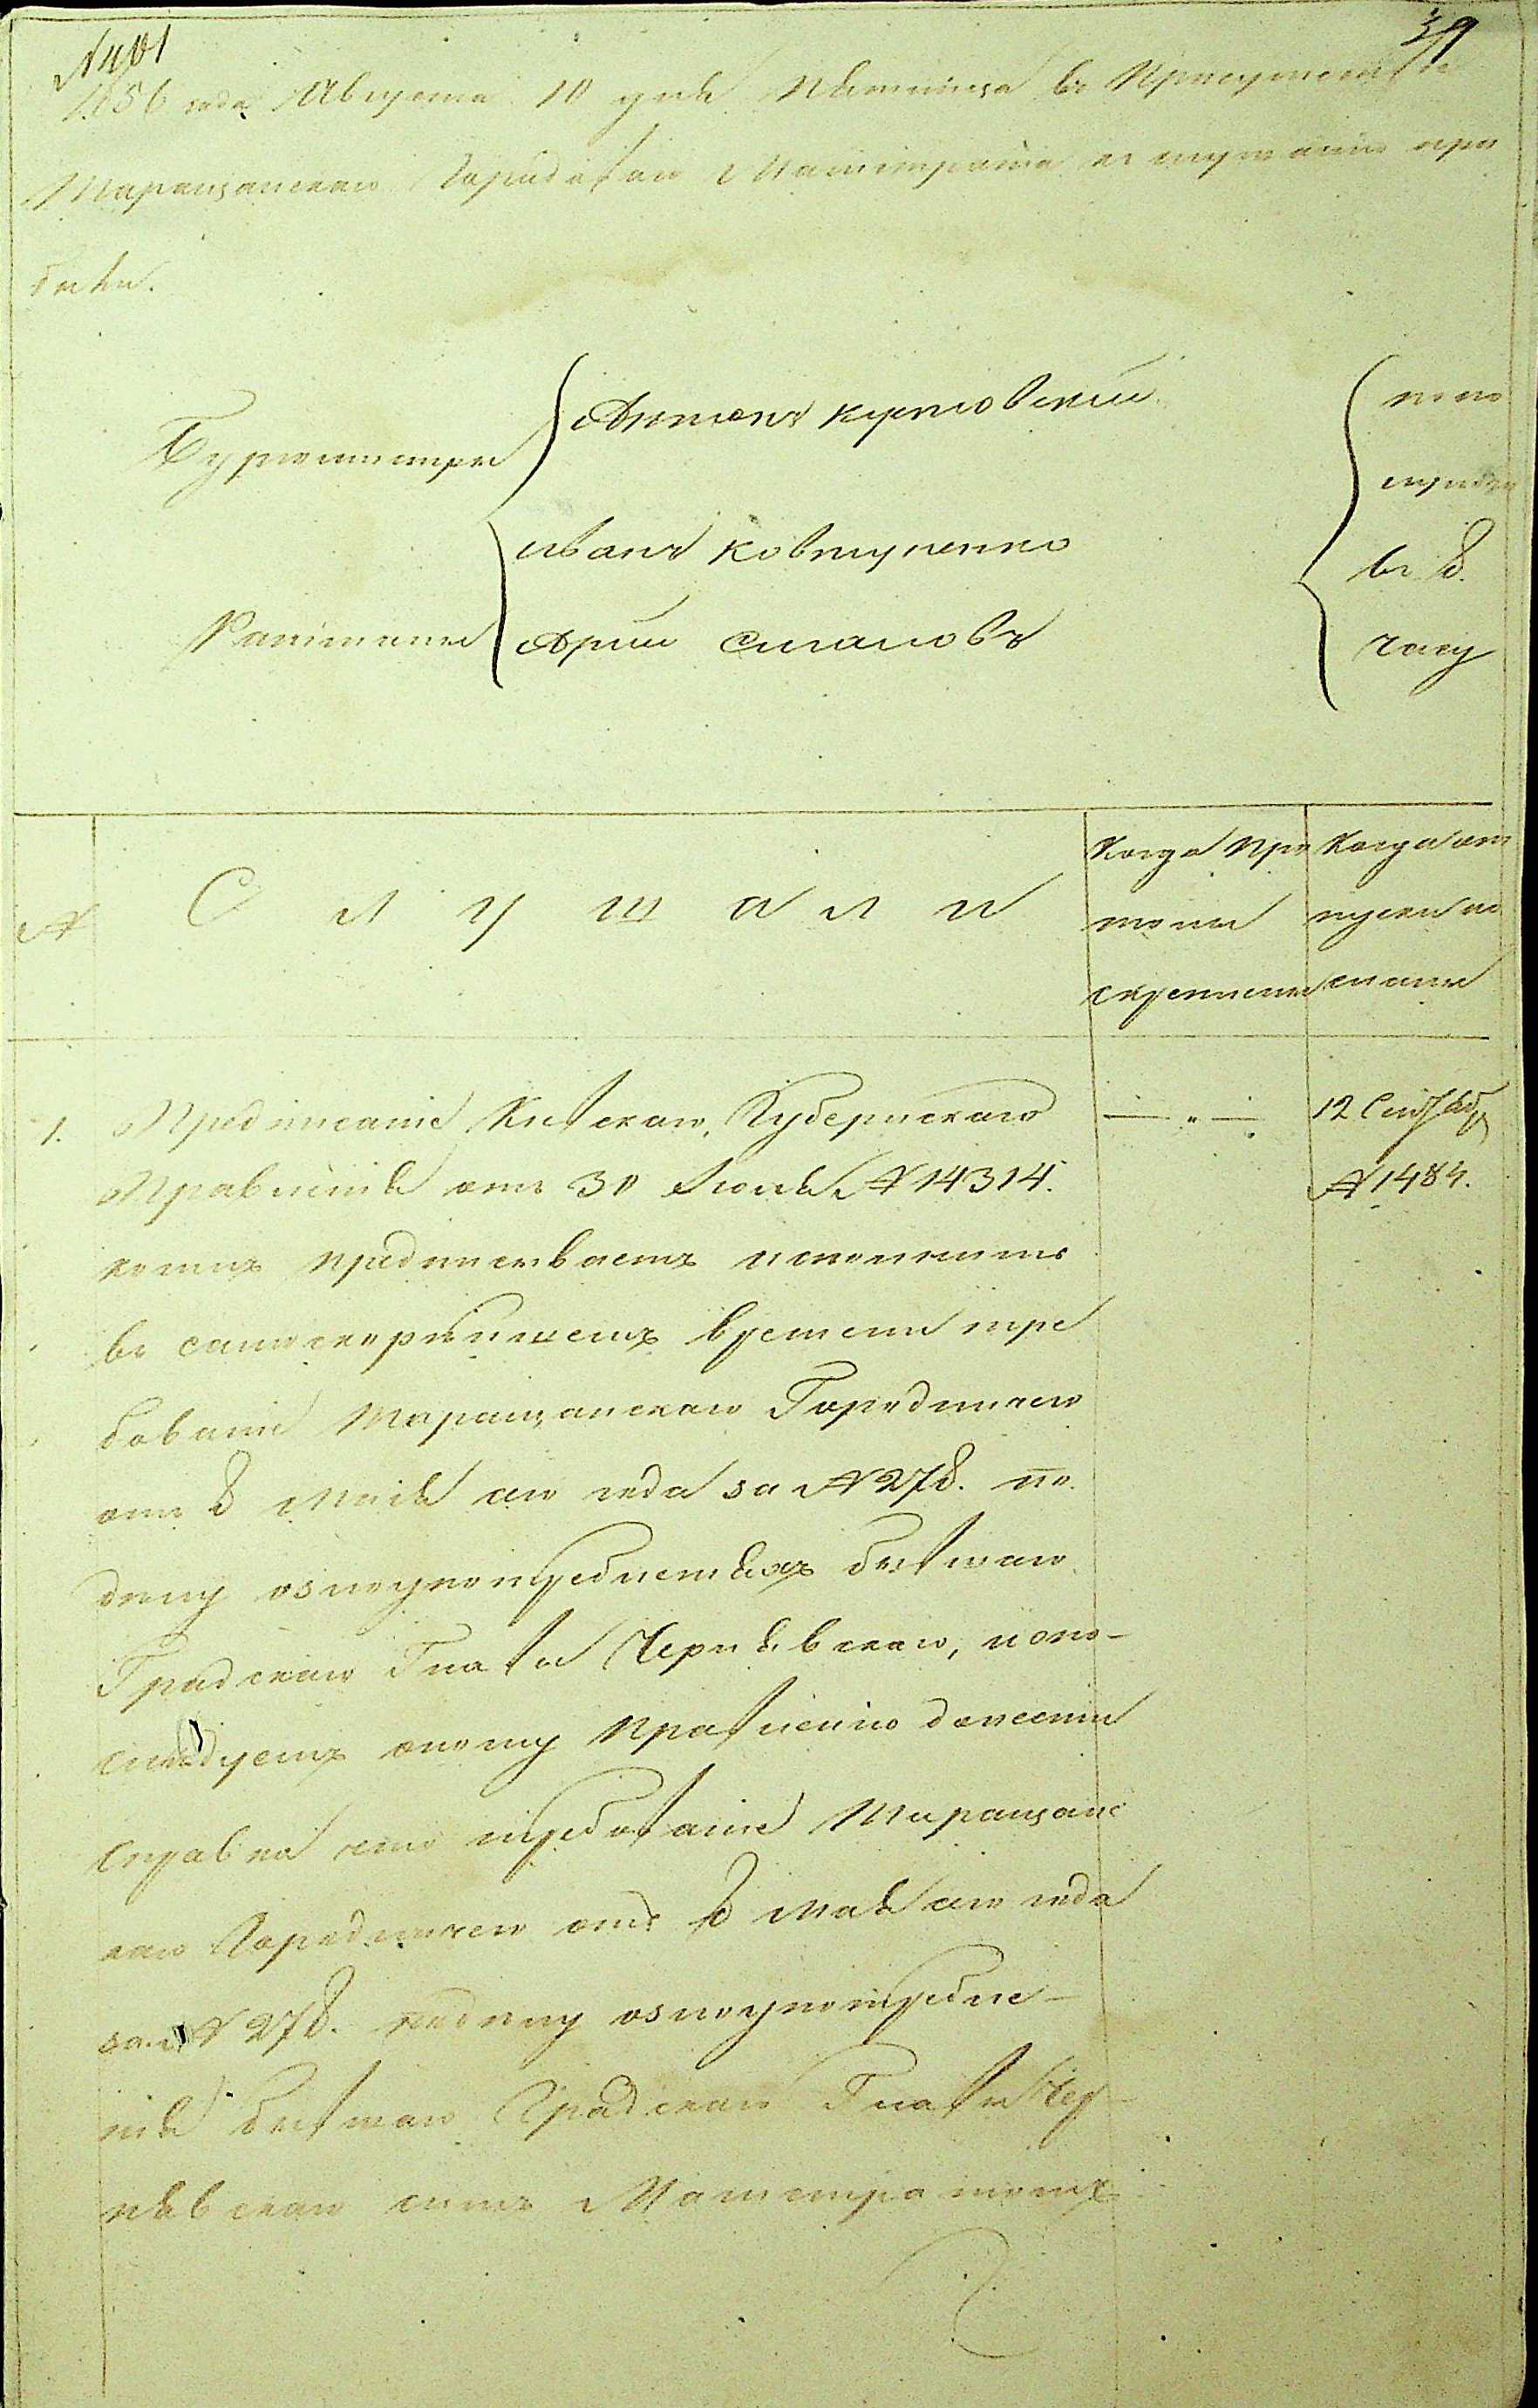 N 401
39
1856 года Августа 10 дня Пятница въ Присутствіе
Таращанскаго Городоваго Магистрата къ слушанію при
были.
Бургомистръ
Антонъ
Иванъ Ковтуненко
Ратманы
по по
лудни
въ 8.
часу
№
Слушали
Когда про
токолъ
скрепленъ
Когда от
пуски по
сланы
1. Предписаніе Кіевскаго Губернскаго
Правленія отъ 30 Іюля № 14314.
коимъ предписываетъ исполнить
въ самоскорѣйшемъ времени тре
бованіе Таращанскаго Городничаго
отъ 8 Мая сего года за № 278. по
делу о злоупотребленіяхъ бывшаго
Градскаго Главы Чернявскаго, и о по-
следуемъ оному Правленію донести
Справка что требованіе Таращанс
каго Городничаго отъ 8 Мая сего года
за № 278. по делу о злоупотребле-
ніи бывшаго Градскаго Главы Чер-
нявскаго симъ Магистратомъ
— „ —
12 Сентября
№ 1484.